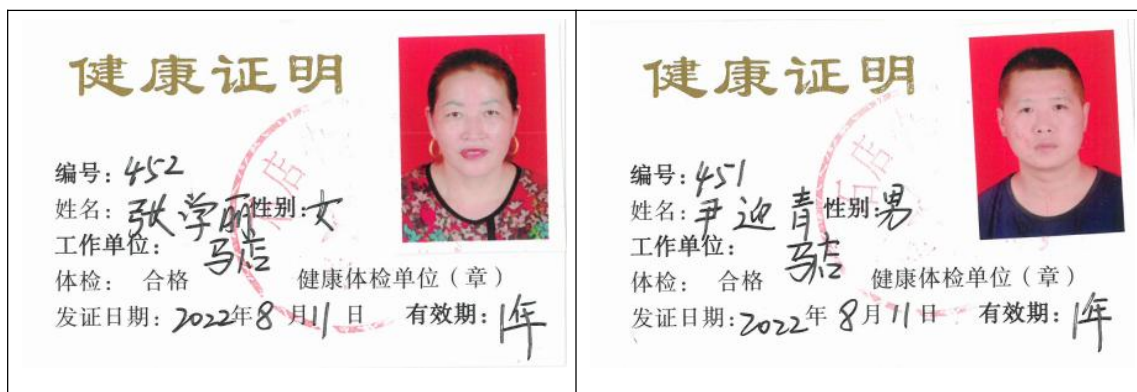 健康证明
编号：452
姓名：张学丽 性别：女
工作单位：
马店
体检： 合格 健康体检单位（章）
发证日期：2022年8月11日 有效期：1年
健康证明
编号：451
姓名：尹迎青 性别：男
工作单位：
马店
体检： 合格 健康体检单位（章）
发证日期：2022年8月11日 有效期：1年